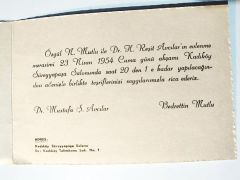 Özgül N. Mutlu ile Dr. H. Reşit Avcılar'ın evlenme
merasimi 23 Nisan 1954 Cuma günü akşamı Kadıköy
Süreyyapaşa Salonunda saat 20 den 1 e kadar yapılacağın-
dan ailenizle birlikte teşriflerinizi saygılarımızla rica ederiz.
Dr. Mustafa Ş. Avcılar
Bedrettin Mutlu
ADRES:
Kadıköy Süreyyapaşa Salonu
Ev: Kadıköy Talimhane Sok. No. 1